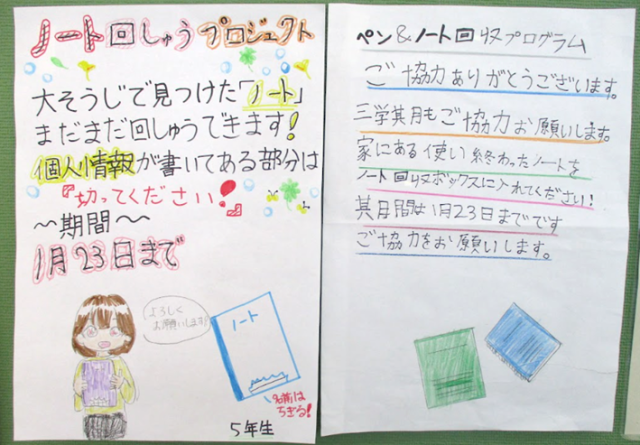 ノート回しゅうプロジェクト
大そうじで見つけた「ノート」
まだまだ回しゅうできます!
個人情報が書いてある部分は
『切ってください!』
〜期間〜
1月23日まで
よろしく
お願いします!
ノート
名前は
ちぎる!
5年生
ペン&ノート回収プログラム
ご協力ありがとうございます。
三学期月もご協力お願いします。
家にある使い終わったノートを
ノート回収ボックスに入れてください!
期間は1月23日までです
ご協力をお願いします。